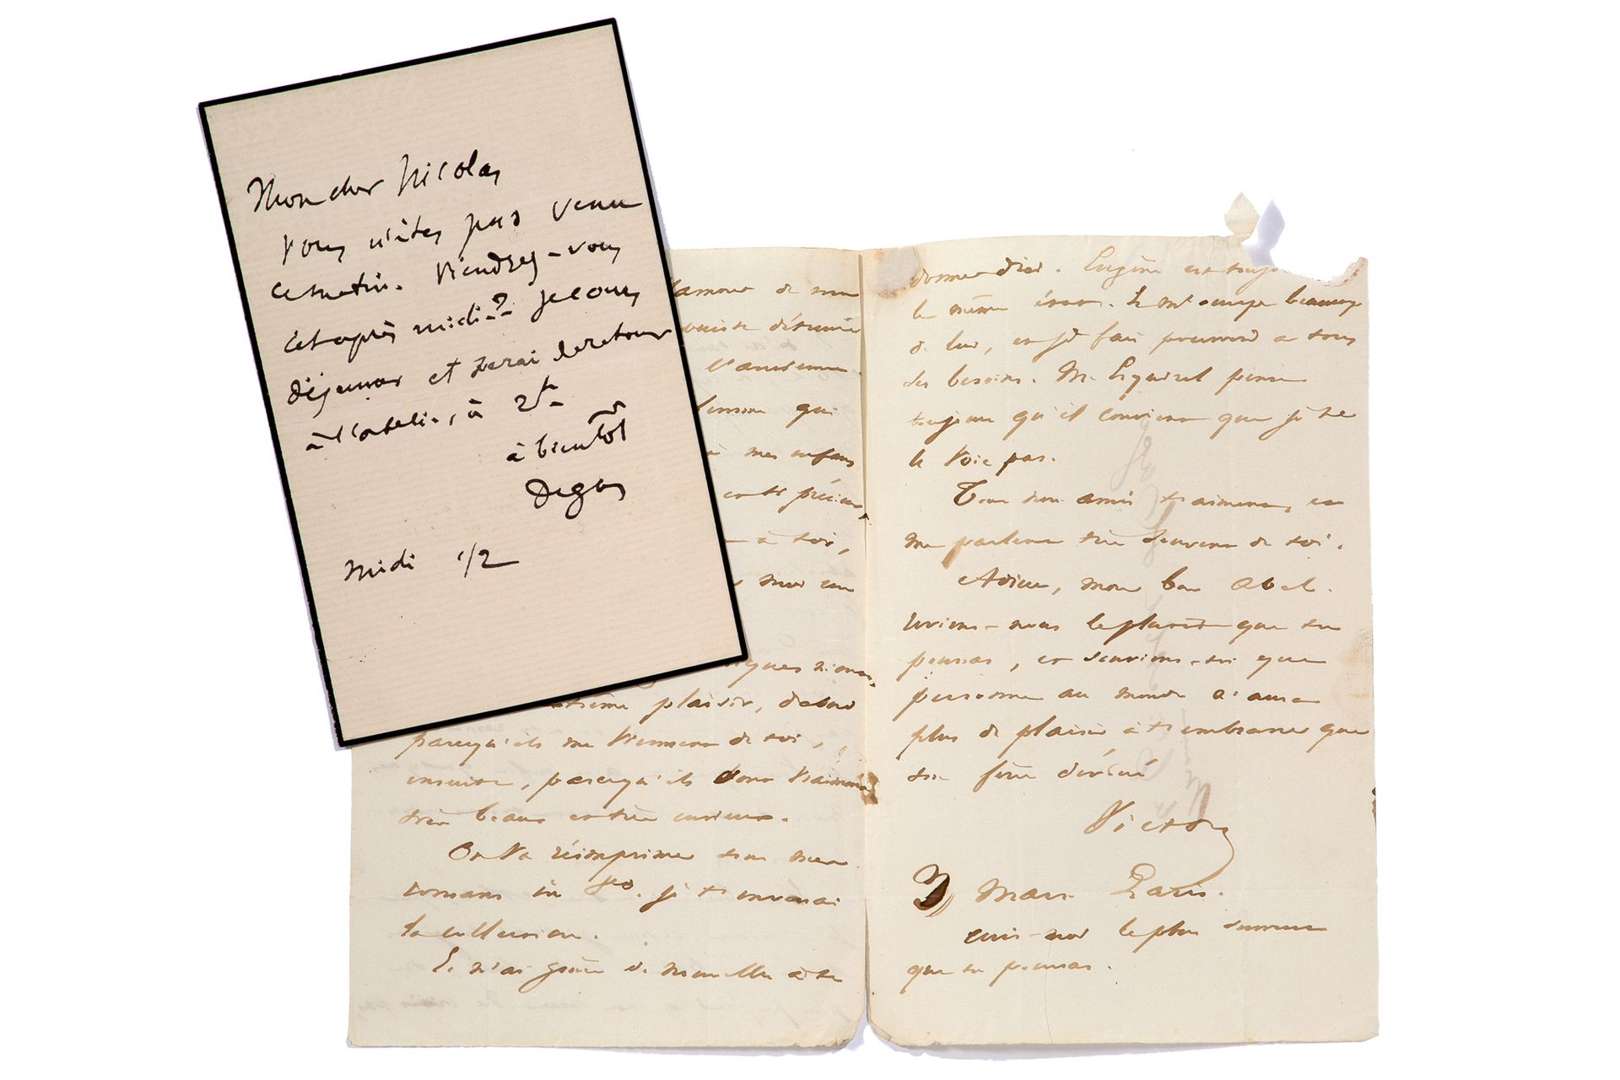 Mon cher Nicolas
Vous n'êtes pas venu
ce matin. Viendrez-vous
cet après midi? Je cours
déjeuner et serai de retour
à l'atelier, à 2h
à bientôt
Degas
midi 1/2
l'amour de mon
désunie
l'ancienne
qui
à mes enfans
et si précieux
à toi,
sur un
plaisir, d'abord
parcequ'ils me viennent de toi,
ensuite, parcequ'ils sont vraiment
très beaux et très curieux.
On va réimprimer tous mes
romans in 8o. Je t'enverrai
la collection.
Je n'ai guère de nouvelles à te
donner d'ici. Eugène est toujo
le même état. Je m'occupe beaucoup
de lui, et je fais pourvoir à tous
ses besoins. M. Esquirol pense
toujours qu'il convient que je ne
le voie pas.
Tous nos amis t'aiment, et
me parlent très souvent de toi.
Adieu, mon bon Abel.
Écriens-nous le plus tôt que tu
pourras, et souviens-toi que
personne au monde n'aura
plus de plaisir à t'embrasser que
ton frère dévoué
Victor
3 Mars Paris.
Écris-moi le plus souvent
que tu pourras.